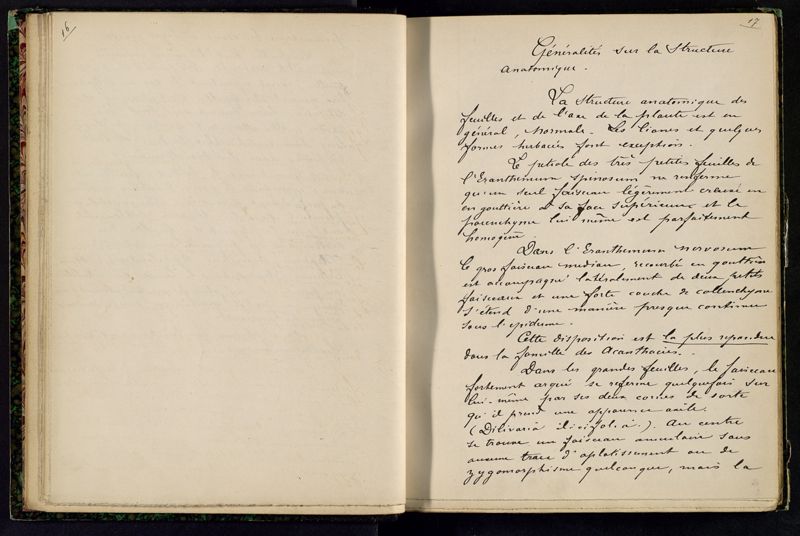 16
17
Généralités sur la Structure
anatomique.
La Structure anatomique des
feuilles et de l'axe de la plante est en
général, normale. Les lianes et quelques
formes herbacées font exception.
Le pétiole des très petites feuilles de
l'Eranthemum spinosum ne renferme
qu'un seul faisceau légèrement creusé en
en gouttière à sa face supérieure et le
parenchyme lui même est parfaitement
homogène.
Dans l'Eranthemum nervosum
le gros faisceau median, recourbé en gouttière
est accompagné latéralement de deux petits
faisceaux et une forte couche de collenchyme
s'étend d'une manière presque continue
sous l'epiderme.
Cette disposition est la plus repandue
dans la famille des Acanthacées.
Dans les grandes feuilles, le faisceau
fortement arqué se referme quelquefois sur
lui-même par ses deux cornes de sorte
qu'il prend une apparence axile.
(Dilivaria ilicifolia). Au centre
se trouve un faisceau annulaire sans
aucune trace d'aplatissement ou de
zygomorphisme quelconque, mais la